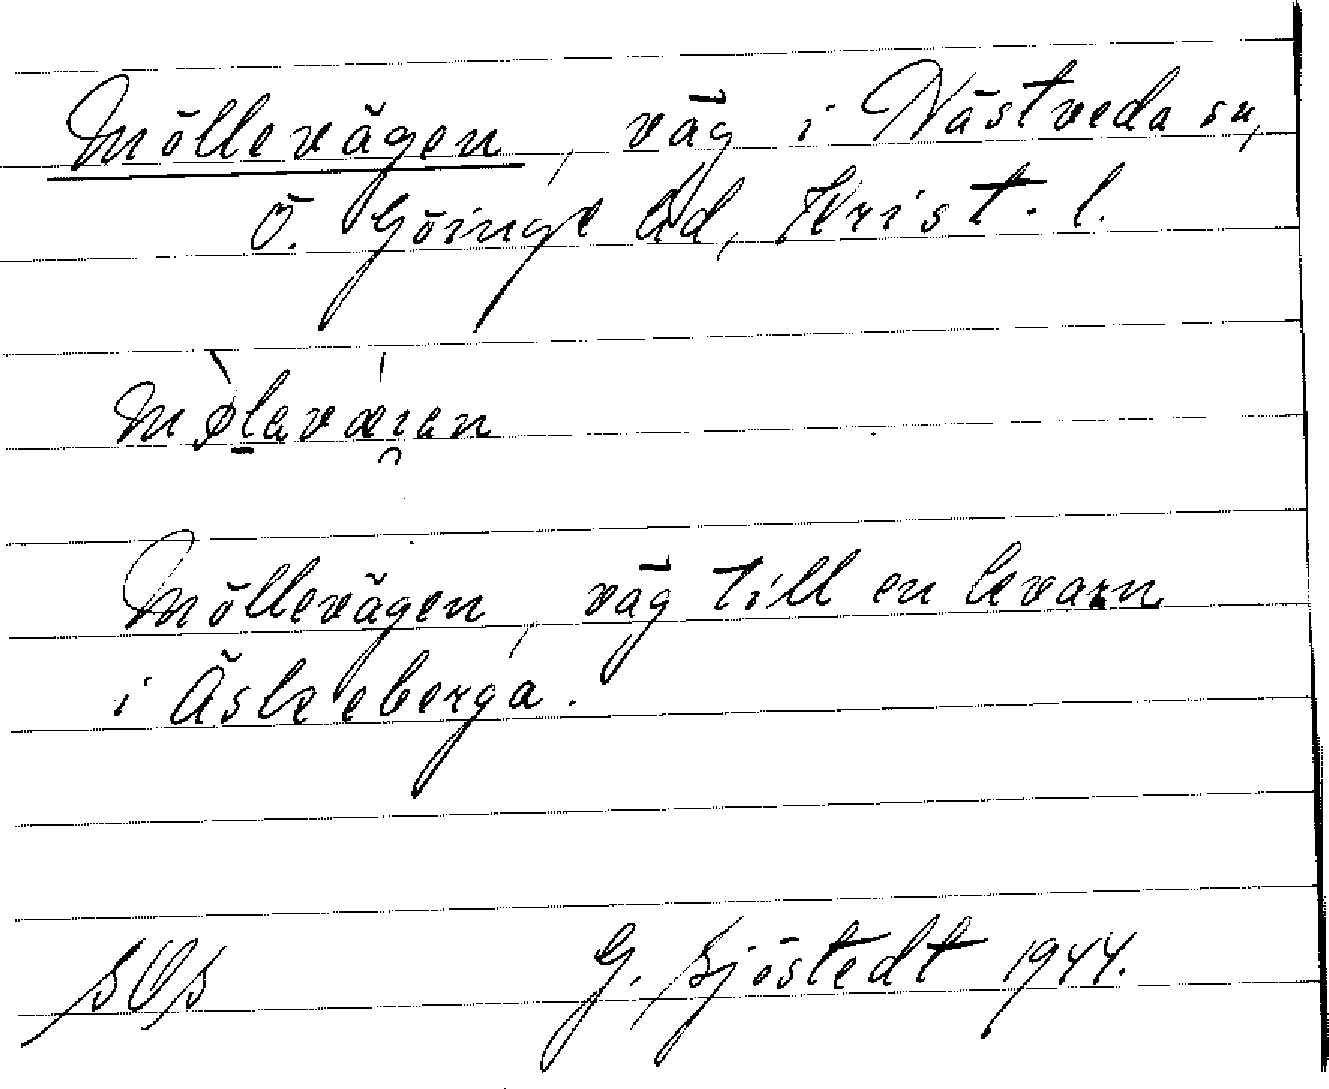 Möllevägen, väg i Nästveda sn,
Ö. Göinge hd, Krist. l.
Möllevägen, väg till en kvarn
i Äskeberga.
G. Sjöstedt 1944.